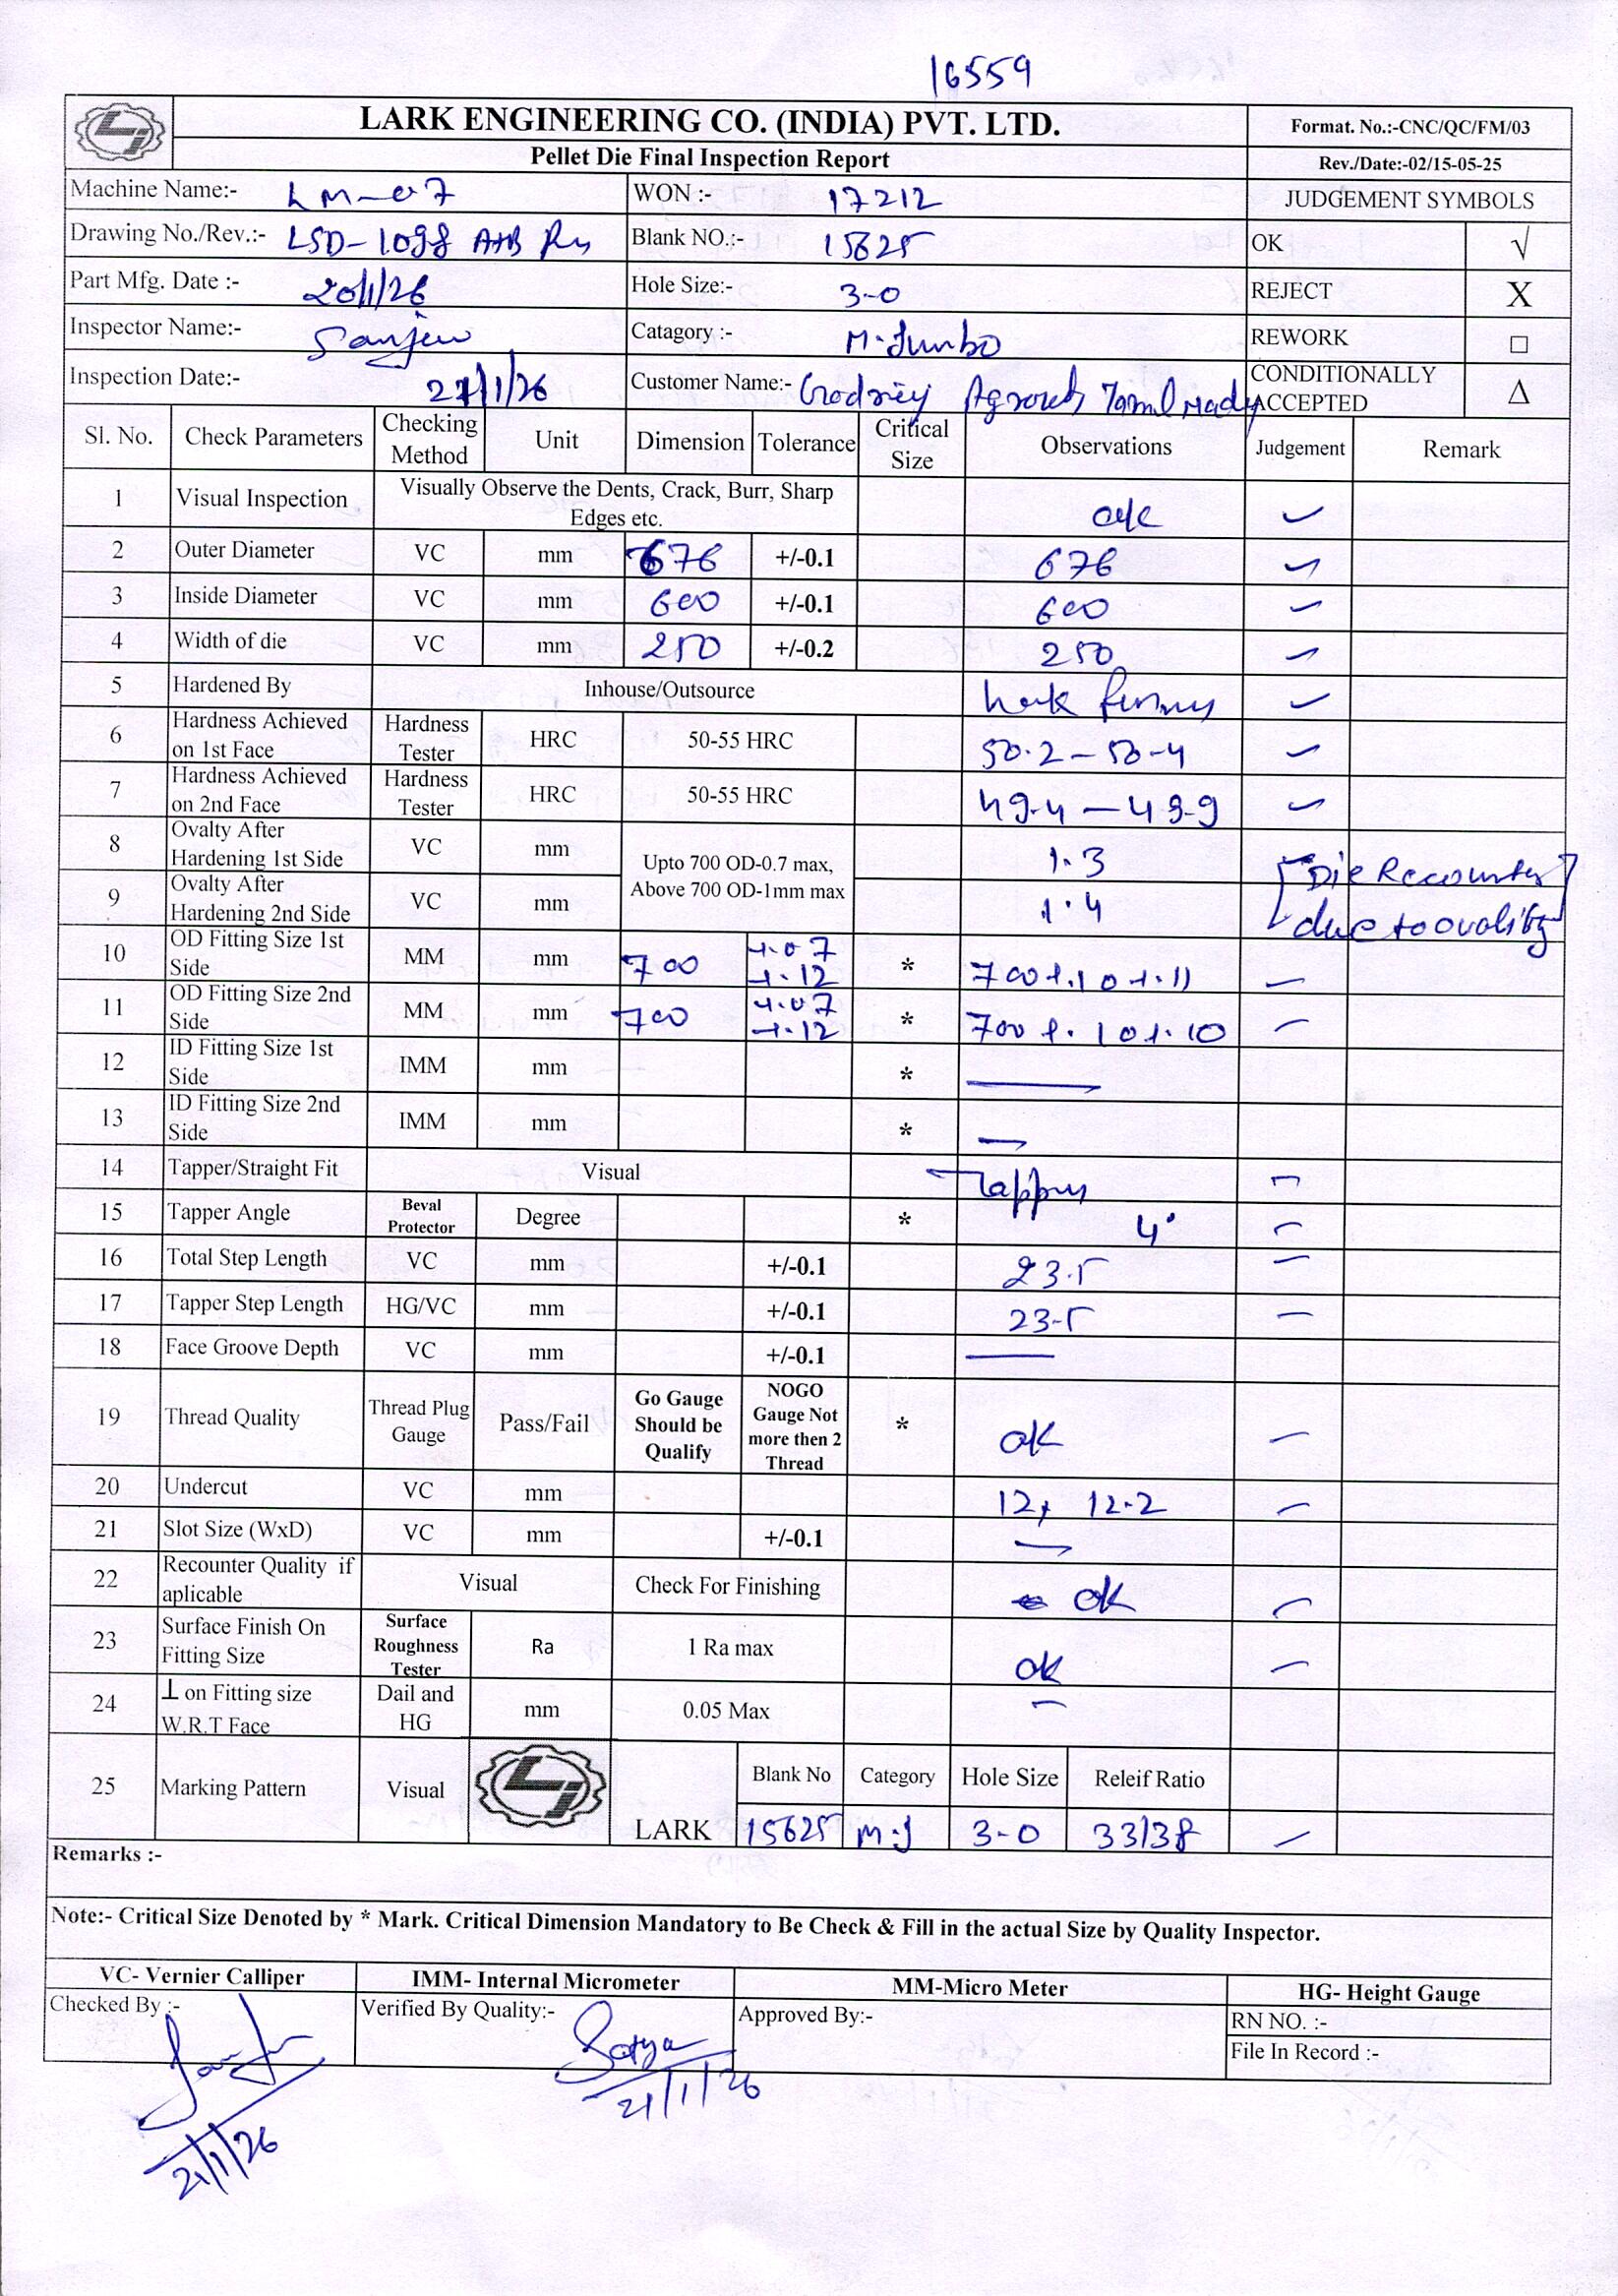 16559
LARK ENGINEERING CO. (INDIA) PVT. LTD.
Format. No.:-CNC/QC/FM/03
Pellet Die Final Inspection Report
Rev./Date:-02/15-05-25
Machine Name:- LM-07 WON :- 17212 JUDGEMENT SYMBOLS
Drawing No./Rev.:- LSD-1098 A+B Blank NO.:- 15625 OK √
Part Mfg. Date :- 20/1/26 Hole Size:- 3-0 REJECT X
Inspector Name:- Sanjeev Catagory :- M.Jumbo REWORK □
Inspection Date:- 21/1/26 Customer Name:- Godrej Agrovet Tamil Nadu CONDITIONALLY ACCEPTED Δ
Sl. No. Check Parameters Checking Method Unit Dimension Tolerance Critical Size Observations Judgement Remark
1 Visual Inspection Visually Observe the Dents, Crack, Burr, Sharp Edges etc. ok ✓
2 Outer Diameter VC mm 676 +/-0.1 676 ✓
3 Inside Diameter VC mm 600 +/-0.1 600 ✓
4 Width of die VC mm 250 +/-0.2 250 ✓
5 Hardened By Inhouse/Outsource Lark ✓
6 Hardness Achieved on 1st Face Hardness Tester HRC 50-55 HRC 50.2-50-4 ✓
7 Hardness Achieved on 2nd Face Hardness Tester HRC 50-55 HRC 49.4-49-9 ✓
8 Ovalty After Hardening 1st Side VC mm Upto 700 OD-0.7 max, Above 700 OD-1mm max 1.3 [Die Recounter
9 Ovalty After Hardening 2nd Side VC mm 1.4 due to ovality]
10 OD Fitting Size 1st Side MM mm 700 +.07 +.12 * 700+.10+.11 ✓
11 OD Fitting Size 2nd Side MM mm 700 +.07 +.12 * 700+.10+.10 ✓
12 ID Fitting Size 1st Side IMM mm * —
13 ID Fitting Size 2nd Side IMM mm * —
14 Tapper/Straight Fit Visual Tapper ✓
15 Tapper Angle Beval Protector Degree * 4° ✓
16 Total Step Length VC mm +/-0.1 23.5 ✓
17 Tapper Step Length HG/VC mm +/-0.1 23-5 ✓
18 Face Groove Depth VC mm +/-0.1 —
19 Thread Quality Thread Plug Gauge Pass/Fail Go Gauge Should be Qualify NOGO Gauge Not more then 2 Thread * ok ✓
20 Undercut VC mm 12, 12.2 ✓
21 Slot Size (WxD) VC mm +/-0.1 —
22 Recounter Quality if aplicable Visual Check For Finishing ok ✓
23 Surface Finish On Fitting Size Surface Roughness Tester Ra 1 Ra max ok ✓
24 ⊥ on Fitting size W.R.T Face Dail and HG mm 0.05 Max —
25 Marking Pattern Visual LARK Blank No Category Hole Size Releif Ratio
15625 M.J 3-0 33/38 ✓
Remarks :-
Note:- Critical Size Denoted by * Mark. Critical Dimension Mandatory to Be Check & Fill in the actual Size by Quality Inspector.
VC- Vernier Calliper IMM- Internal Micrometer MM-Micro Meter HG- Height Gauge
Checked By :- Verified By Quality:- Satya Approved By:- RN NO. :-
File In Record :-
21/1/26
21/1/26